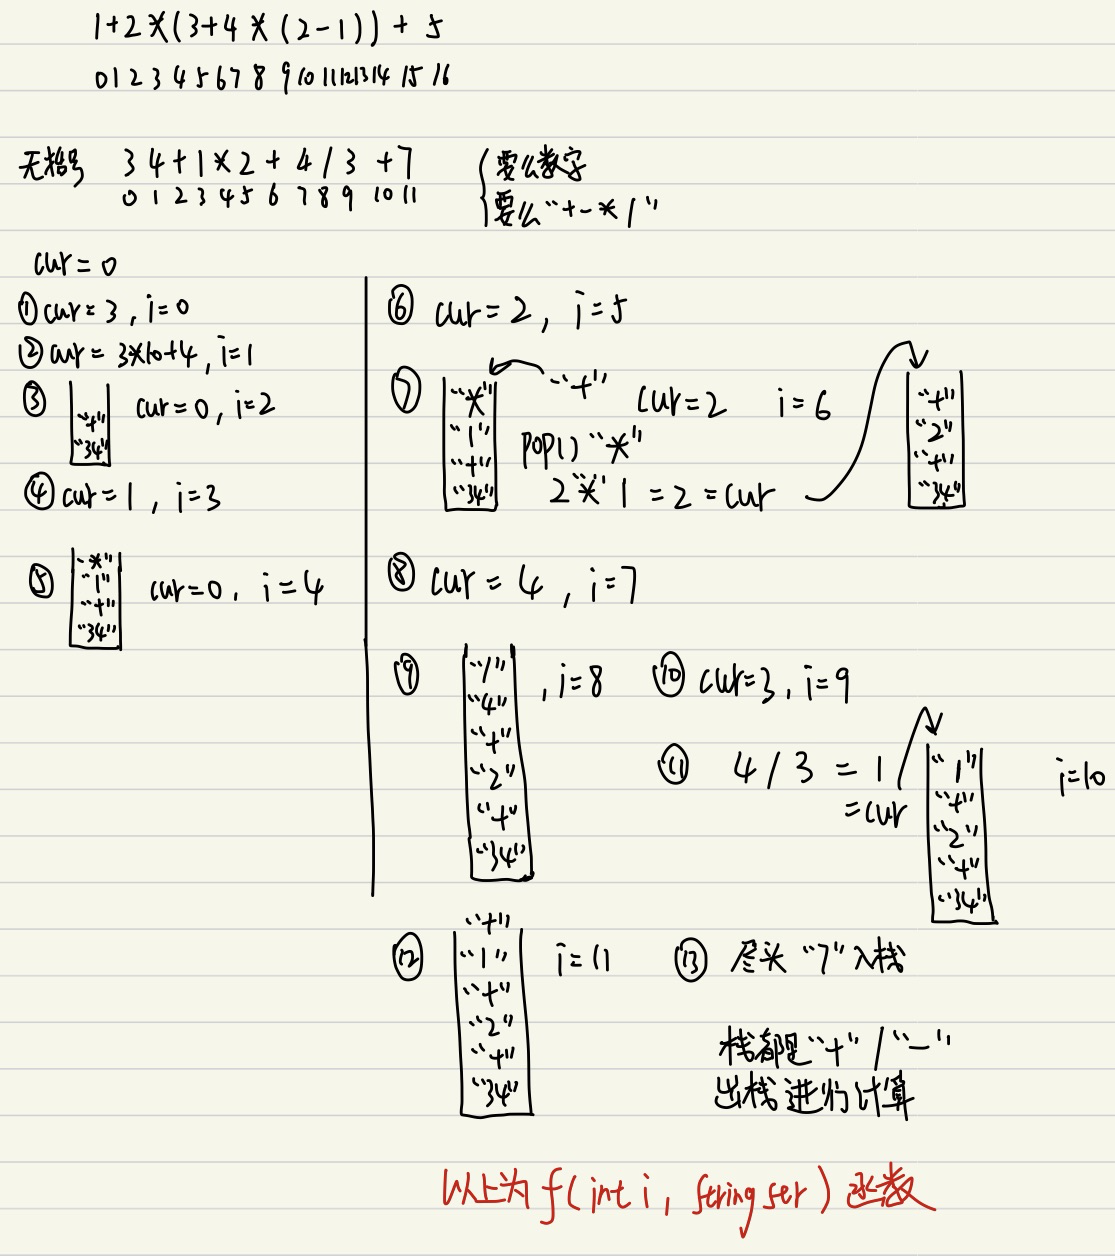 1+2*(3+4*(2-1))+5
0 1 2 3 4 5 6 7 8 9 10 11 12 13 14 15 16
无括号 34+1*2+4/3+7
0 1 2 3 4 5 6 7 8 9 10 11
要么数字
要么"+-*/"
cur=0
①cur=3,i=0
②cur=3*10+4,i=1
③ "+" "34" cur=0,i=2
④cur=1,i=3
⑤ "*" "1" "+" "34" cur=0,i=4
⑥ cur=2,i=5
⑦ "*" "1" "+" "34" "+" cur=2 i=6
pop() "*"
2"*"1=2=cur
"+" "2" "+" "34"
⑧ cur=4,i=7
⑨ "/" "4" "+" "2" "+" "34" ,i=8
⑩ cur=3,i=9
⑪ 4/3=1
=cur
"1" "+" "2" "+" "34" i=10
⑫ "+" "1" "+" "2" "+" "34" i=11
⑬ 尽头"7"入栈
栈都是"+"/"-"
出栈进行计算
以上为f(int i, String ser)函数